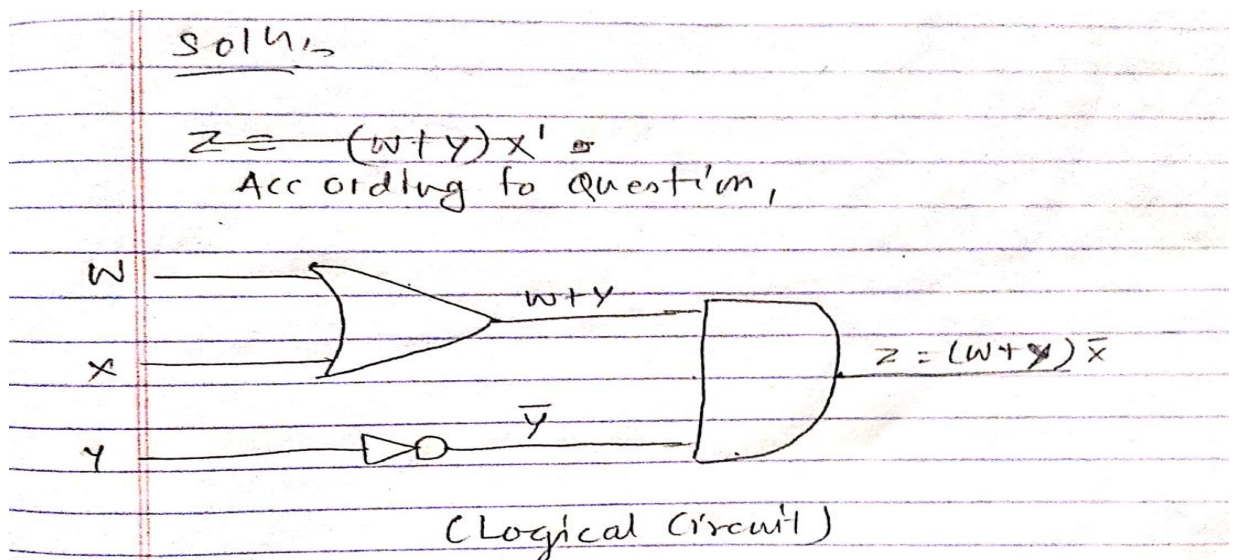 Soln,
Z = (W+Y)X' =
According to Question,
W
W+Y
X
Z = (W+Y)X̅
Y
Y̅
(Logical Circuit)